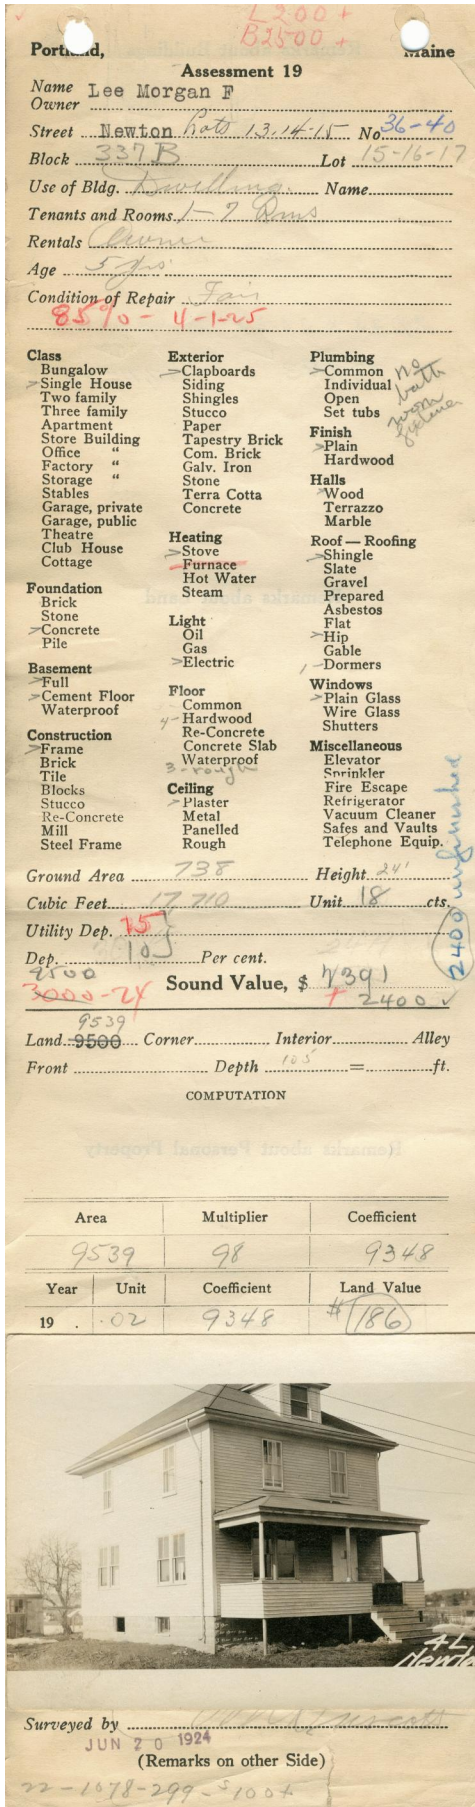 L 200 +
B 2500 +
Portland, Maine
Assessment 19
Name Owner Lee Morgan F
Street Newton Lots 13.14.15 No 36-40
Block 337 B Lot 15-16-17
Use of Bldg. Dwelling Name
Tenants and Rooms 1-7 Rms
Rentals Owner
Age 5 yrs
Condition of Repair Fair
85% - 4-1-25
Class
Bungalow
Single House
Two family
Three family
Apartment
Store Building
Office "
Factory "
Storage "
Stables
Garage, private
Garage, public
Theatre
Club House
Cottage
Foundation
Brick
Stone
Concrete
Pile
Basement
Full
Cement Floor
Waterproof
Construction
Frame
Brick
Tile
Blocks
Stucco
Re-Concrete
Mill
Steel Frame
Exterior
Clapboards
Siding
Shingles
Stucco
Paper
Tapestry Brick
Com. Brick
Galv. Iron
Stone
Terra Cotta
Concrete
Heating
Stove
Furnace
Hot Water
Steam
Light
Oil
Gas
Electric
Floor
Common
4- Hardwood
Re-Concrete
Concrete Slab
Waterproof
3-rough
Ceiling
Plaster
Metal
Panelled
Rough
Plumbing
Common
Individual
Open
Set tubs
no bath room
Finish
Plain
Hardwood
Halls
Wood
Terrazzo
Marble
Roof — Roofing
Shingle
Slate
Gravel
Prepared
Asbestos
Flat
Hip
Gable
1- Dormers
Windows
Plain Glass
Wire Glass
Shutters
Miscellaneous
Elevator
Sprinkler
Fire Escape
Refrigerator
Vacuum Cleaner
Safes and Vaults
Telephone Equip.
2400 unfinished
Ground Area 738 Height 24'
Cubic Feet 17 710 Unit 18 cts.
Utility Dep. 15
Dep. 10 Per cent.
9500
Sound Value, $ 2391
3000-24 + 2400
9539
Land 9500 Corner Interior Alley
Front Depth 105 = ft.
COMPUTATION
Area Multiplier Coefficient
9539 98 9348
Year Unit Coefficient Land Value
19 . .02 9348 $186
4 L
Newto
Surveyed by
JUN 20 1924
(Remarks on other Side)
22-1078-299-$100+